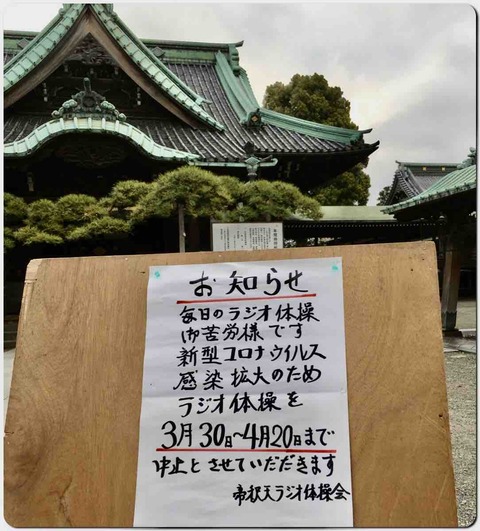 お知らせ
毎日のラジオ体操
御苦労様です
新型コロナウイルス
感染拡大のため
ラジオ体操を
3月30日〜4月20日まで
中止とさせていただきます
帝釈天ラジオ体操会